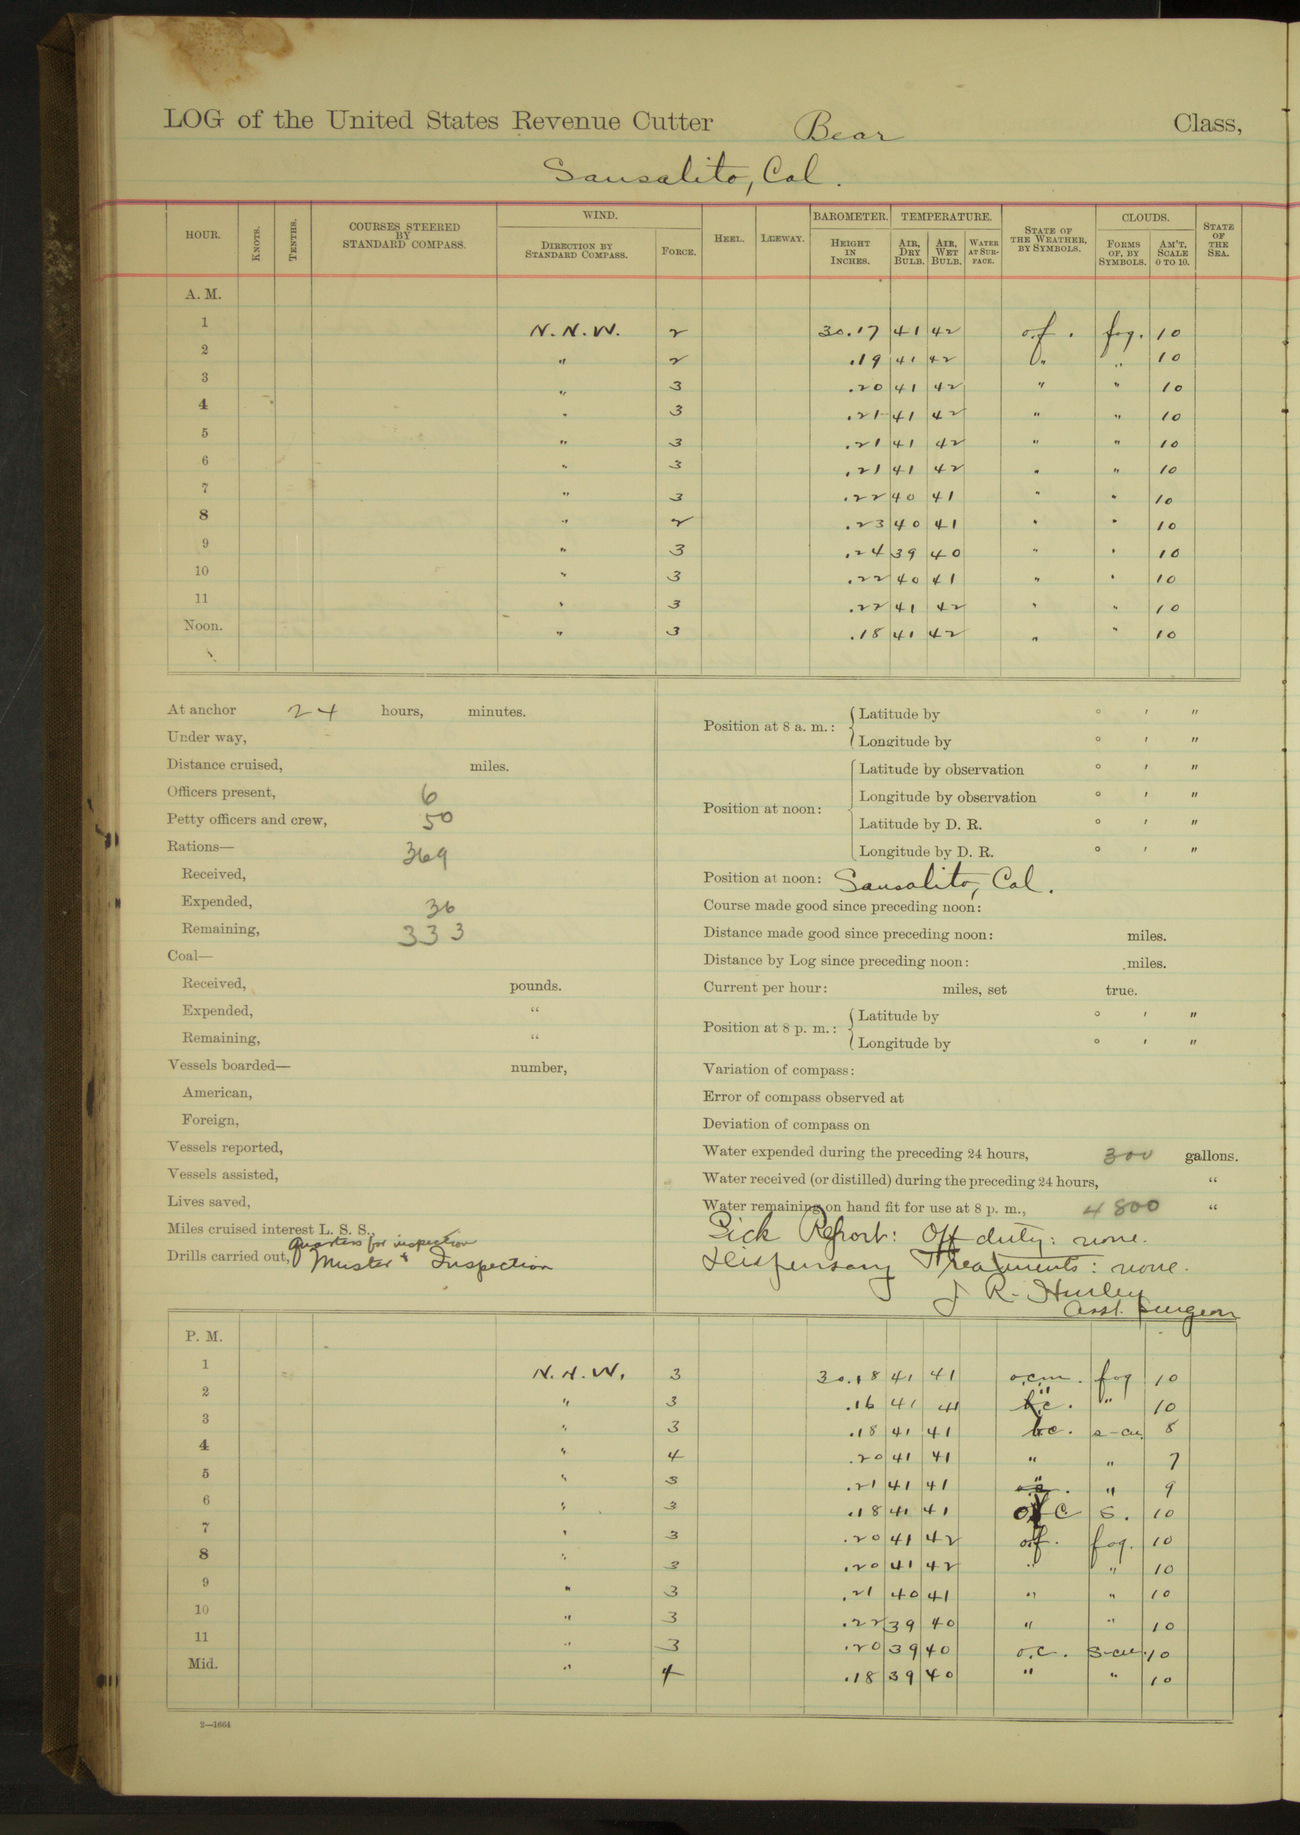 LOG of the United States Revenue Cutter Bear Class,
Sausalito, Cal.
HOUR. KNOTS. TENTHS. COURSES STEERED BY STANDARD COMPASS. WIND. DIRECTION BY STANDARD COMPASS. FORCE. HEEL. LEEWAY. BAROMETER. HEIGHT IN INCHES. TEMPERATURE. AIR, DRY BULB. AIR, WET BULB. WATER AT SURFACE. STATE OF THE WEATHER, BY SYMBOLS. CLOUDS. FORMS OF, BY SYMBOLS. AM'T, SCALE 0 TO 10. STATE OF THE SEA.
A. M.
1 N. N. W. 2 30.17 41 42 o.f. fog. 10
2 " 2 .19 41 42 " " 10
3 " 3 .20 41 42 " " 10
4 " 3 .21 41 42 " " 10
5 " 3 .21 41 42 " " 10
6 " 3 .21 41 42 " " 10
7 " 3 .22 40 41 " " 10
8 " 2 .23 40 41 " " 10
9 " 3 .24 39 40 " " 10
10 " 3 .22 40 41 " " 10
11 " 3 .22 41 42 " " 10
Noon. " 3 .18 41 42 " " 10
At anchor 24 hours, minutes.
Under way,
Distance cruised, miles.
Officers present, 6
Petty officers and crew, 50
Rations— 369
Received,
Expended, 36
Remaining, 333
Coal—
Received, pounds.
Expended, "
Remaining, "
Vessels boarded— number,
American,
Foreign,
Vessels reported,
Vessels assisted,
Lives saved,
Miles cruised interest L. S. S.,
Quarters for inspection
Drills carried out, Muster & Inspection
Position at 8 a. m.: Latitude by ° ' "
Longitude by ° ' "
Position at noon: Latitude by observation ° ' "
Longitude by observation ° ' "
Latitude by D. R. ° ' "
Longitude by D. R. ° ' "
Position at noon: Sausalito, Cal.
Course made good since preceding noon:
Distance made good since preceding noon: miles.
Distance by Log since preceding noon: miles.
Current per hour: miles, set true.
Position at 8 p. m.: Latitude by ° ' "
Longitude by ° ' "
Variation of compass:
Error of compass observed at
Deviation of compass on
Water expended during the preceding 24 hours, 300 gallons.
Water received (or distilled) during the preceding 24 hours, "
Water remaining on hand fit for use at 8 p. m., 4800 "
Sick Report: Off duty: none.
Dispensary Treatments: none.
J. R. Hurley
Asst. Surgeon
P. M.
1 N. N. W. 3 30.18 41 41 o.c.m. fog 10
2 " 3 .16 41 41 " " 10
3 " 3 .18 41 41 b.c. s-cu. 8
4 " 4 .20 41 41 " " 7
5 " 3 .21 41 41 " " 9
6 " 3 .18 41 41 o c s. 10
7 " 3 .20 41 42 o.f. fog. 10
8 " 3 .20 41 42 " " 10
9 " 3 .21 40 41 " " 10
10 " 3 .22 39 40 " " 10
11 " 3 .20 39 40 o.c. s-cu. 10
Mid. " 4 .18 39 40 " " 10
2—1664